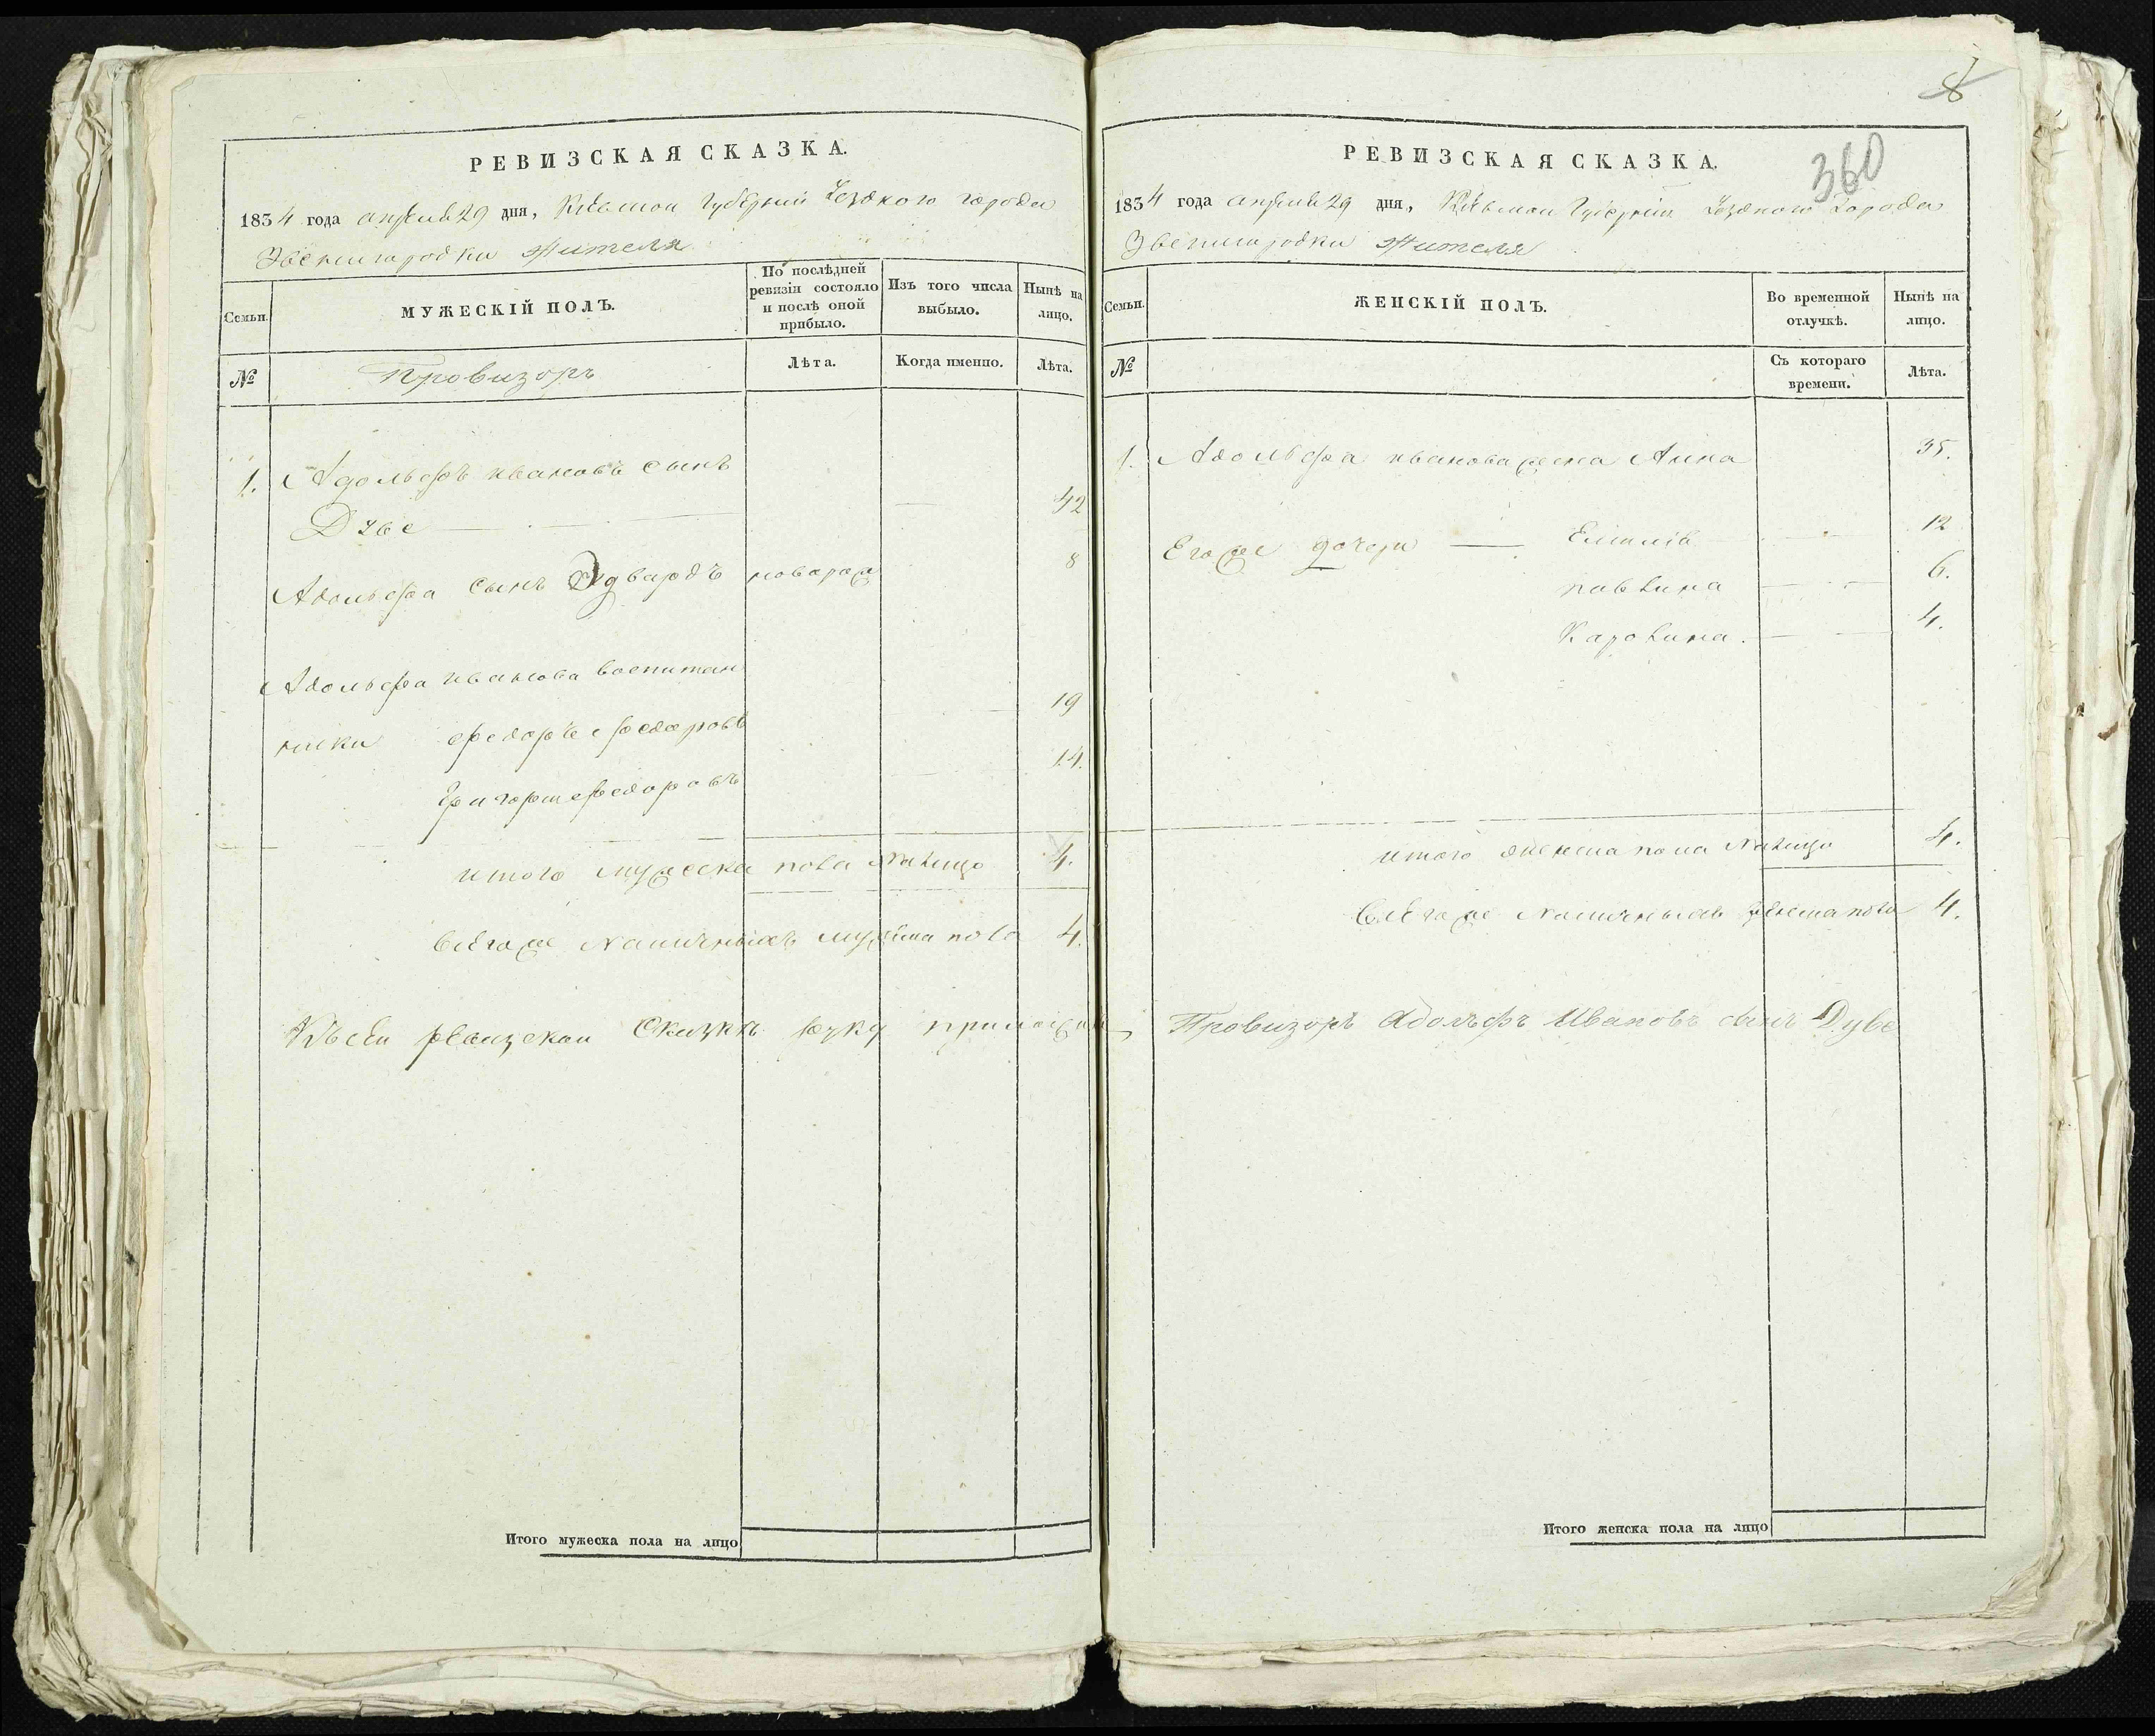 РЕВИЗСКАЯ СКАЗКА.
1834 года апреля 29 дня, Киевской Губернии Уездного города
Звенигородки Жителя
Семьи.
МУЖЕСКІЙ ПОЛЪ.
По послѣдней
ревизіи состояло
и послѣ оной
прибыло.
Изъ того числа
выбыло.
Нынѣ на
лицо.
№
Провизоръ
Лѣта.
Когда именно.
Лѣта.
1. Адольфъ Ивановъ сынъ
Дубе 42
Адольфа сынъ Эдвардъ новорож 8
Адольфа Иванова воспитан
ники Федоръ Федоровъ 19
Григорий Федоровъ 14.
Итого мужеска пола налицо 4.
Всего же наличныхъ мужеска пола 4.
Къ сей ревизской Сказки руку приложил
Итого мужеска пола на лицо
8
360
РЕВИЗСКАЯ СКАЗКА.
1834 года апреля 29 дня, Киевской Губернии Уездного Города
Звенигородки Жителя
Семьи.
ЖЕНСКІЙ ПОЛЪ.
Во временной
отлучкѣ.
Нынѣ на
лицо.
№
Съ котораго
времени.
Лѣта.
1. Адольфа Иванова жена Анна 35.
Его же дочери Емилія 12
Павлина 6.
Каролина. 4.
Итого женска пола налицо 4.
Всего же наличныхъ женска пола 4.
Провизоръ Адольфъ Ивановъ сынъ Дубе
Итого женска пола на лицо